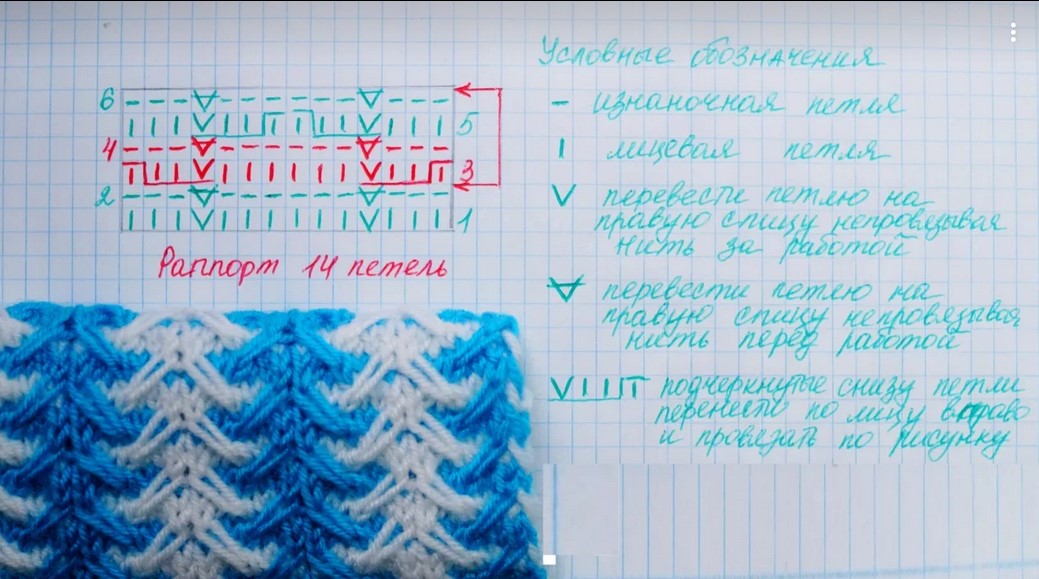 6
5
4
3
2
1
Раппорт 14 петель
Условные обозначения
– изнаночная петля
I лицевая петля
V перевести петлю на
правую спицу непровязывая
нить за работой
перевести петлю на
правую спицу непровязывая
нить перед работой
подчеркнутые снизу петли
перенести по лицу вправо
и провязать по рисунку